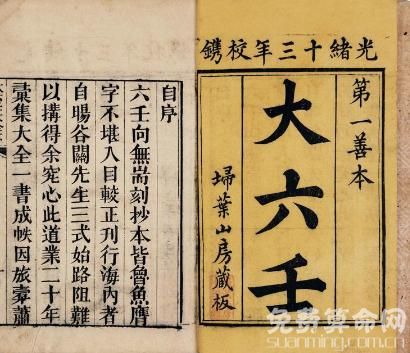 光緒十三年校鐫
第一善本
大六壬
埽葉山房藏板
自序
六壬向無耑刻抄本皆魯魚鷹
字不堪入目較正刊行海內者
自暘谷關先生三式始路阻難
以搆得余究心此道業二十年
彙集大全一書成帙因旅橐蕭
免费算命网
www.suanming.com.cn